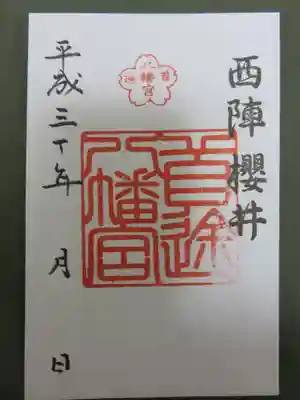 西陣 櫻井
八幡宮
首途
首途
八幡宮
平成三十年 月 日